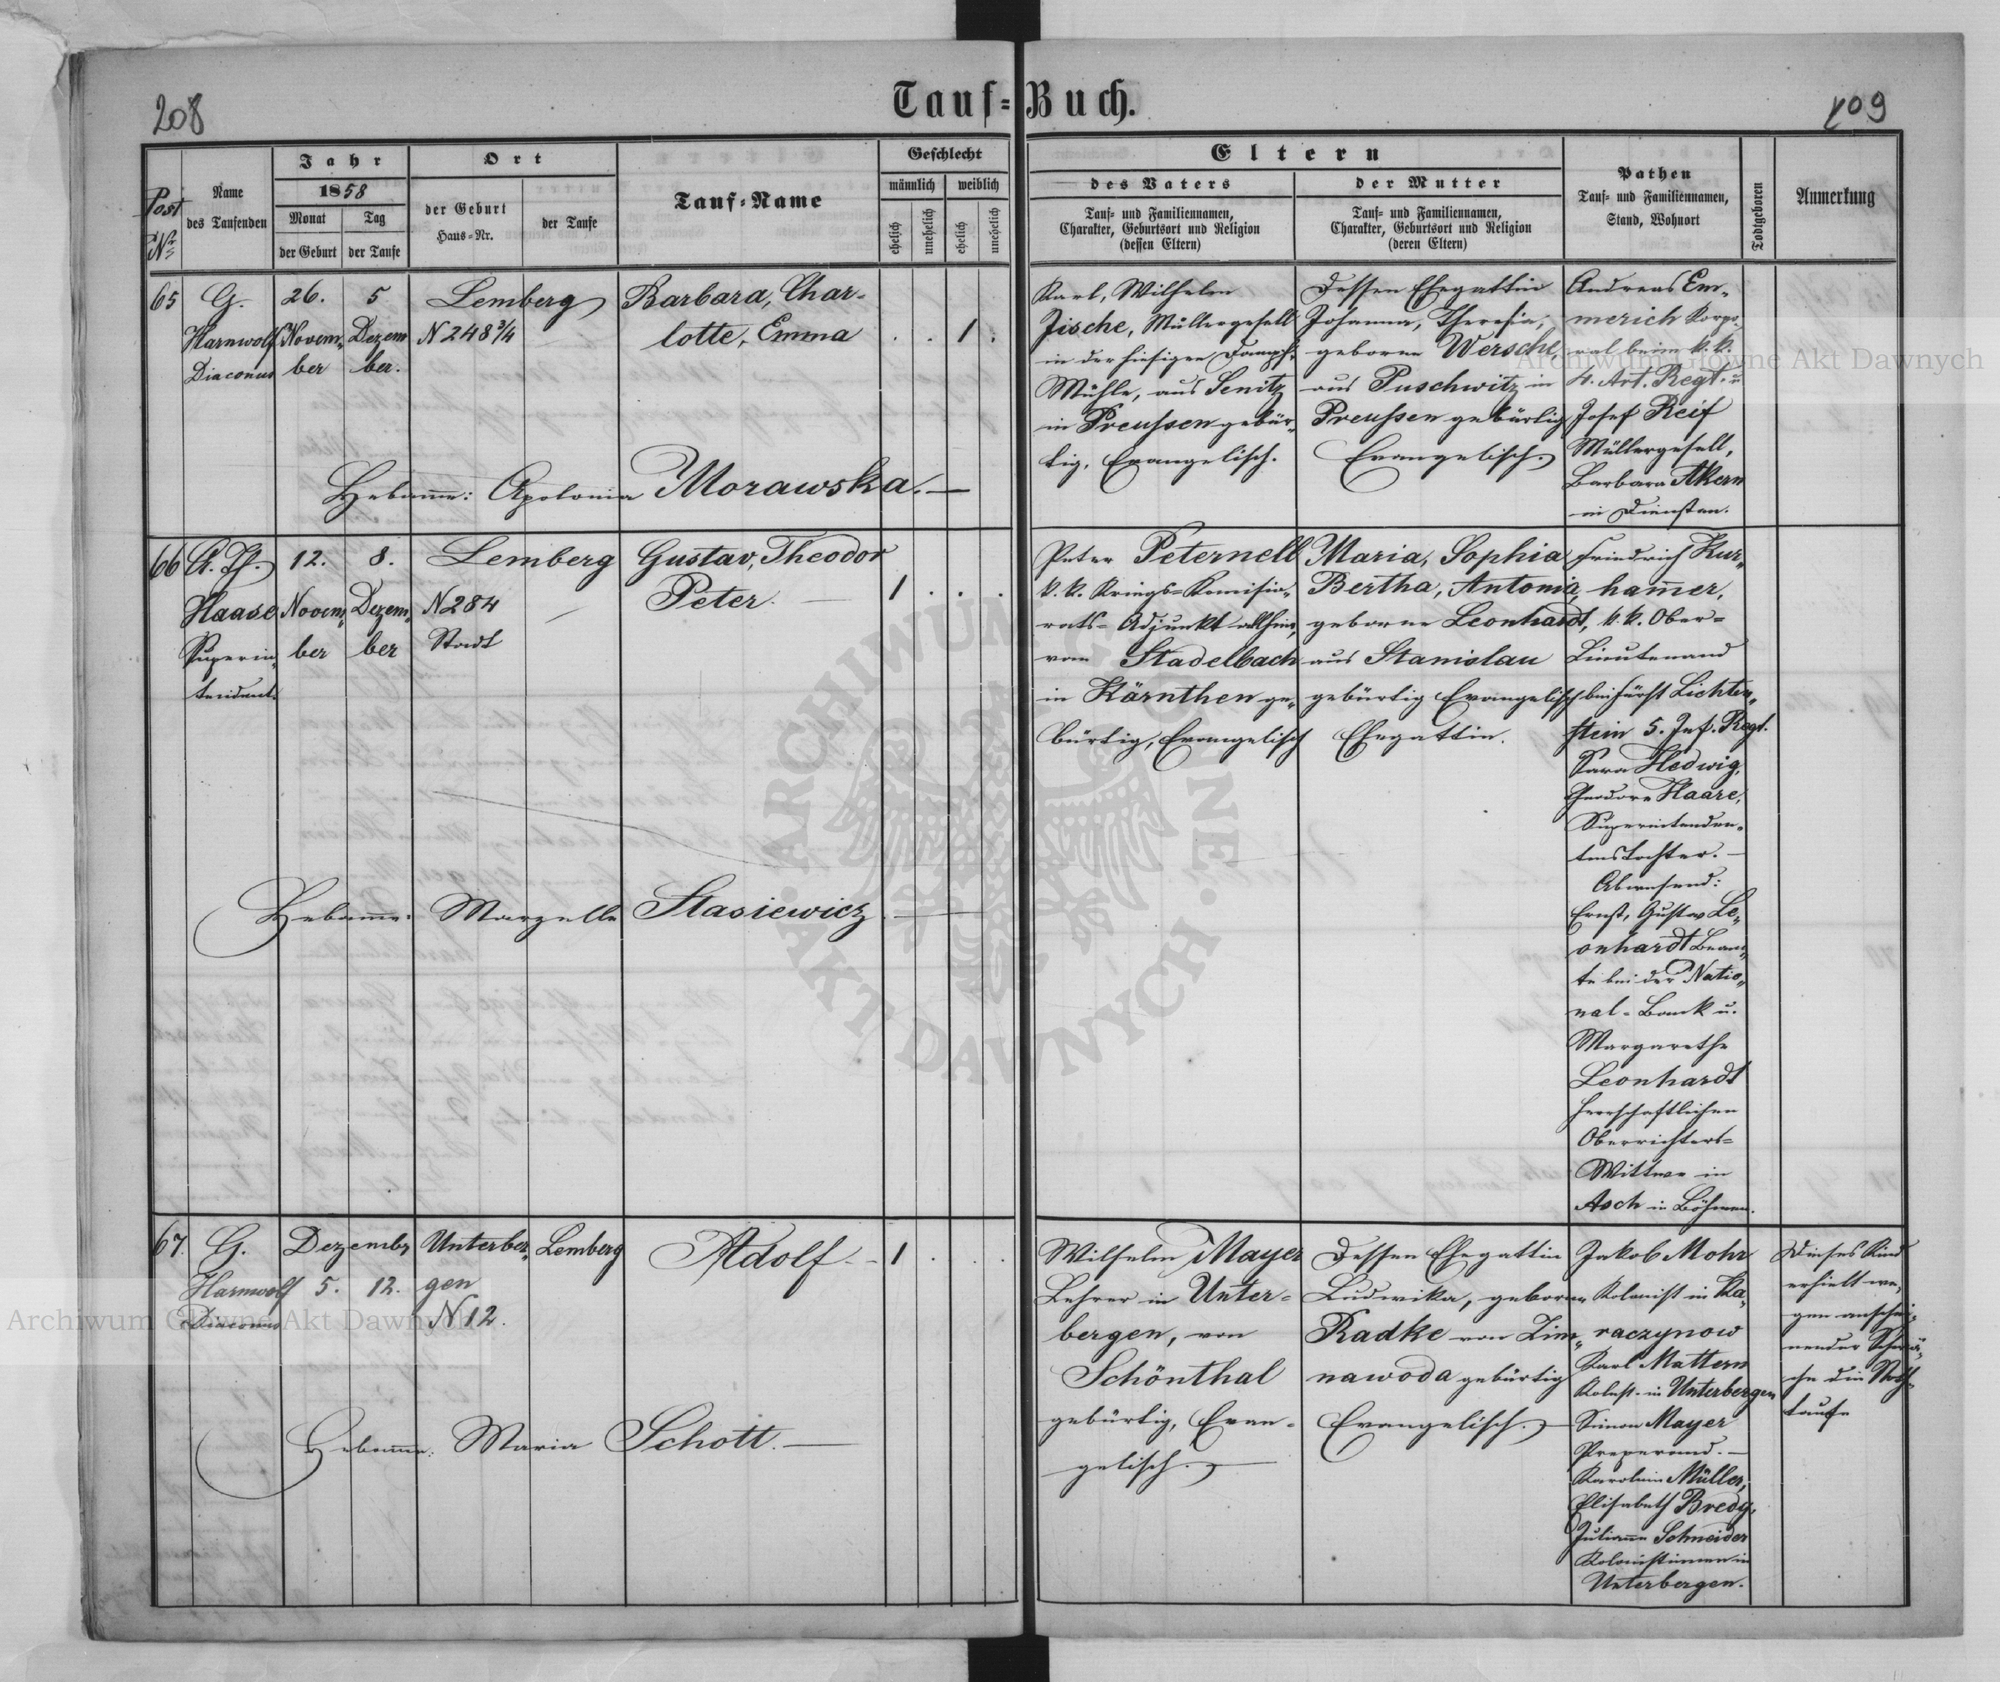 208
Tauf=Buch.
209
Post Nr.
Name des Taufenden
Jahr
1858
Monat der Geburt
Tag der Taufe
Ort
der Geburt Haus=Nr.
der Taufe
Tauf=Name
Geschlecht
männlich
weiblich
ehelich
unehelich
ehelich
unehelich
Eltern
des Vaters
Tauf= und Familiennamen,
Charakter, Geburtsort und Religion
(dessen Eltern)
der Mutter
Tauf= und Familiennamen,
Charakter, Geburtsort und Religion
(deren Eltern)
Pathen
Tauf= und Familiennamen,
Stand, Wohnort
Todtgeboren
Anmerkung
65
G.
Harnwolf
Diaconus
26.
Novem=
ber
5
Dezem
ber.
Lemberg
N 248 3/4
Barbara, Char=
lotte, Emma
1
Karl, Wilhelm
Zische, Müllergesell
in der hiesigen Dampf=
Mühle, aus Senitz
in Preussen gebür=
tig, Evangelisch.
Dessen Ehegattin
Johanna, Theresia,
geborne Wersche,
aus Puschwitz in
Preussen gebürtig
Evangelisch.
Andreas Em=
merich Korpo=
ral beim k. k.
4. Art. Regt. u
Josef Reif
Müllergesell,
Barbara Akern
in Diensten.
Hebamme: Apolonia Morawska.
66
A. Th.
Haase
Superin=
tendent.
12.
Novem=
ber
8.
Dezem=
ber
Lemberg
N 284
Stadt
Gustav, Theodor
Peter.
1
Peter Peternell
k. k. Kriegs=Komissa=
rats=Adjunkt allhier,
von Stadelbach
in Kärnthen ge=
bürtig, Evangelisch
Maria, Sophia
Bertha, Antonia,
geborne Leonhardt,
aus Stanislau
gebürtig Evangelisch
Ehegattin.
Friedrich Kur=
hammer,
k. k. Ober=
Lieutenand
bei Fürst Lichten=
stein 5. Inf. Regt.
Sara Hedwig,
Theodore Haase,
Superintenden=
tens Tochter.
Abwesend:
Ernst, Gustav Le=
onhardt Beam=
te bei der Natio=
nal=Bank u.
Margarethe
Leonhardt
herrschaftlichen
Oberrichters=
Wittwe in
Asch in Böhmen.
Hebamme: Marzelle Stasiewicz
67.
G.
Harnwolf
Diaconus
Dezember
5. 12.
Unterber=
gen
N 12.
Lemberg
Adolf
1
Wilhelm Mayer
Lehrer in Unter=
bergen, von
Schönthal
gebürtig, Evan=
gelisch.
Dessen Ehegattin
Ludwika, geborne
Radke von Zim=
nawoda gebürtig
Evangelisch.
Jakob Mohr
Kolonist in Ka=
raczynow
Karl Mattern
Kolnst. in Unterbergen
Simon Mayer
Preperand.
Karoline Müller,
Elisabeth Bredy,
Julianna Schneider
Kolonistinnen in
Unterbergen.
Dieses Kind
erhielt we=
gen anschei=
nender Schwä=
che die Noth=
taufe
Hebamme: Maria Schott.
Archiwum Główne Akt Dawnych
Archiwum Główne Akt Dawnych
ARCHIWUM GŁÓWNE · AKT DAWNYCH ·